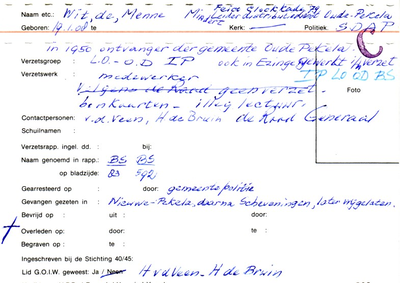 Naam etc.: Wit, de, Menne M: Feico Glockkade 74
Leider distributiedienst Oude-Pekela
Geboren: 19.1.00 te Kerk: Politiek. SDAP
in 1950 ontvanger der gemeente Oude Pekela C
Verzetsgroep L.O.-O.D IP ook in Ezinge gewerkt in verzet
Verzetswerk medewerker IP LO OD BS
Volgens de Raad geen verzet.
bonkaarten - illeg lectuur. Foto
Contactpersonen: v.d. Veen, H de Bruin de Raad Generaal
Schuilnamen :
Verzetsrapp. ingel. dd. : bij:
Naam genoemd in rapp.: BS BS
op bladzijde: 83 592
Gearresteerd op : door: gemeentepolitie
Gevangen gezeten in: Nieuwe-Pekela, daarna Scheveningen, later vrijgelaten.
Bevrijd op : uit : door:
Overleden op: door: te :
Begraven op : te :
Ingeschreven bij de Stichting 40/45:
Lid G.O.I.W. geweest: Ja / Neen H v d Veen - H de Bruin